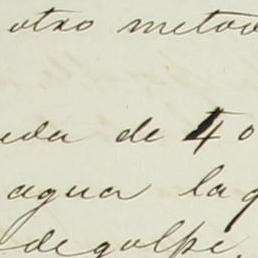 otro metod
uda de 40
agua la q
de golpe,